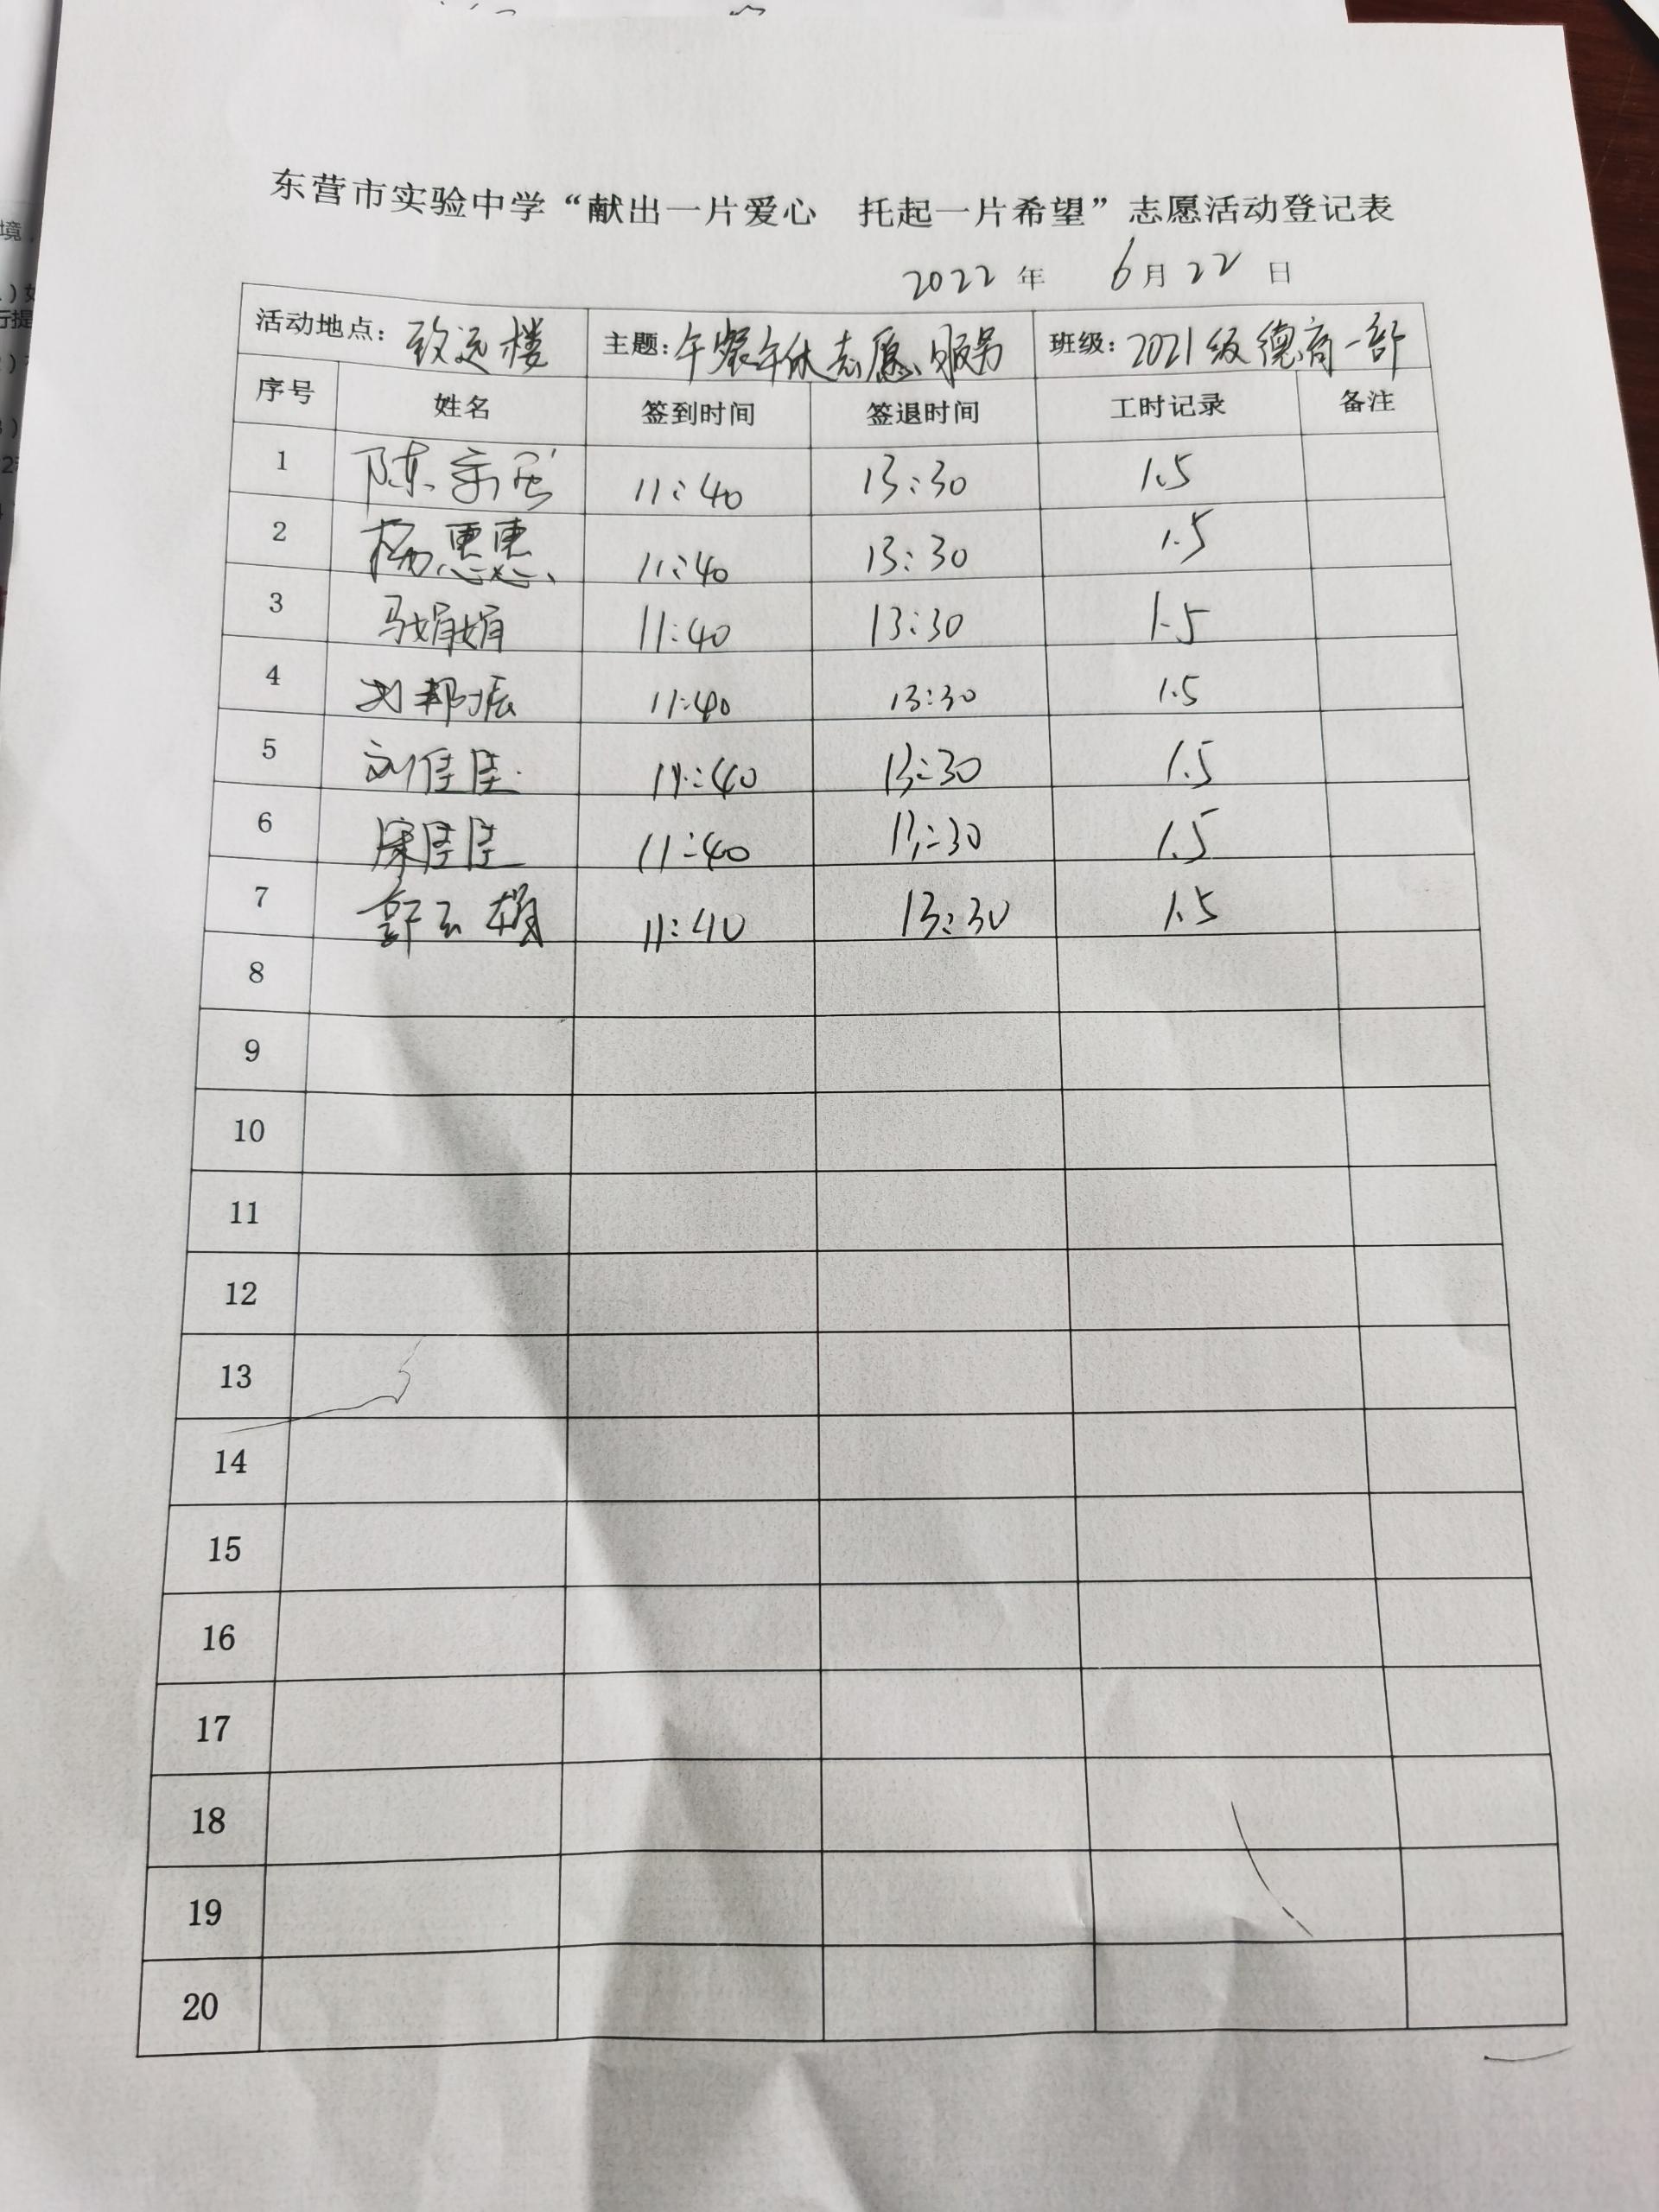 东营市实验中学“献出一片爱心　托起一片希望”志愿活动登记表
2022 年 6 月 22 日
活动地点：致远楼 主题：午餐午休志愿服务 班级：2021级德育一部
序号 姓名 签到时间 签退时间 工时记录 备注
1 陈 11:40 13:30 1.5
2 杨惠惠 11:40 13:30 1.5
3 马娟娟 11:40 13:30 1.5
4 刘邦振 11:40 13:30 1.5
5 刘佳佳 11:40 13:30 1.5
6 佳佳 11:40 13:30 1.5
7 11:40 13:30 1.5
8
9
10
11
12
13
14
15
16
17
18
19
20